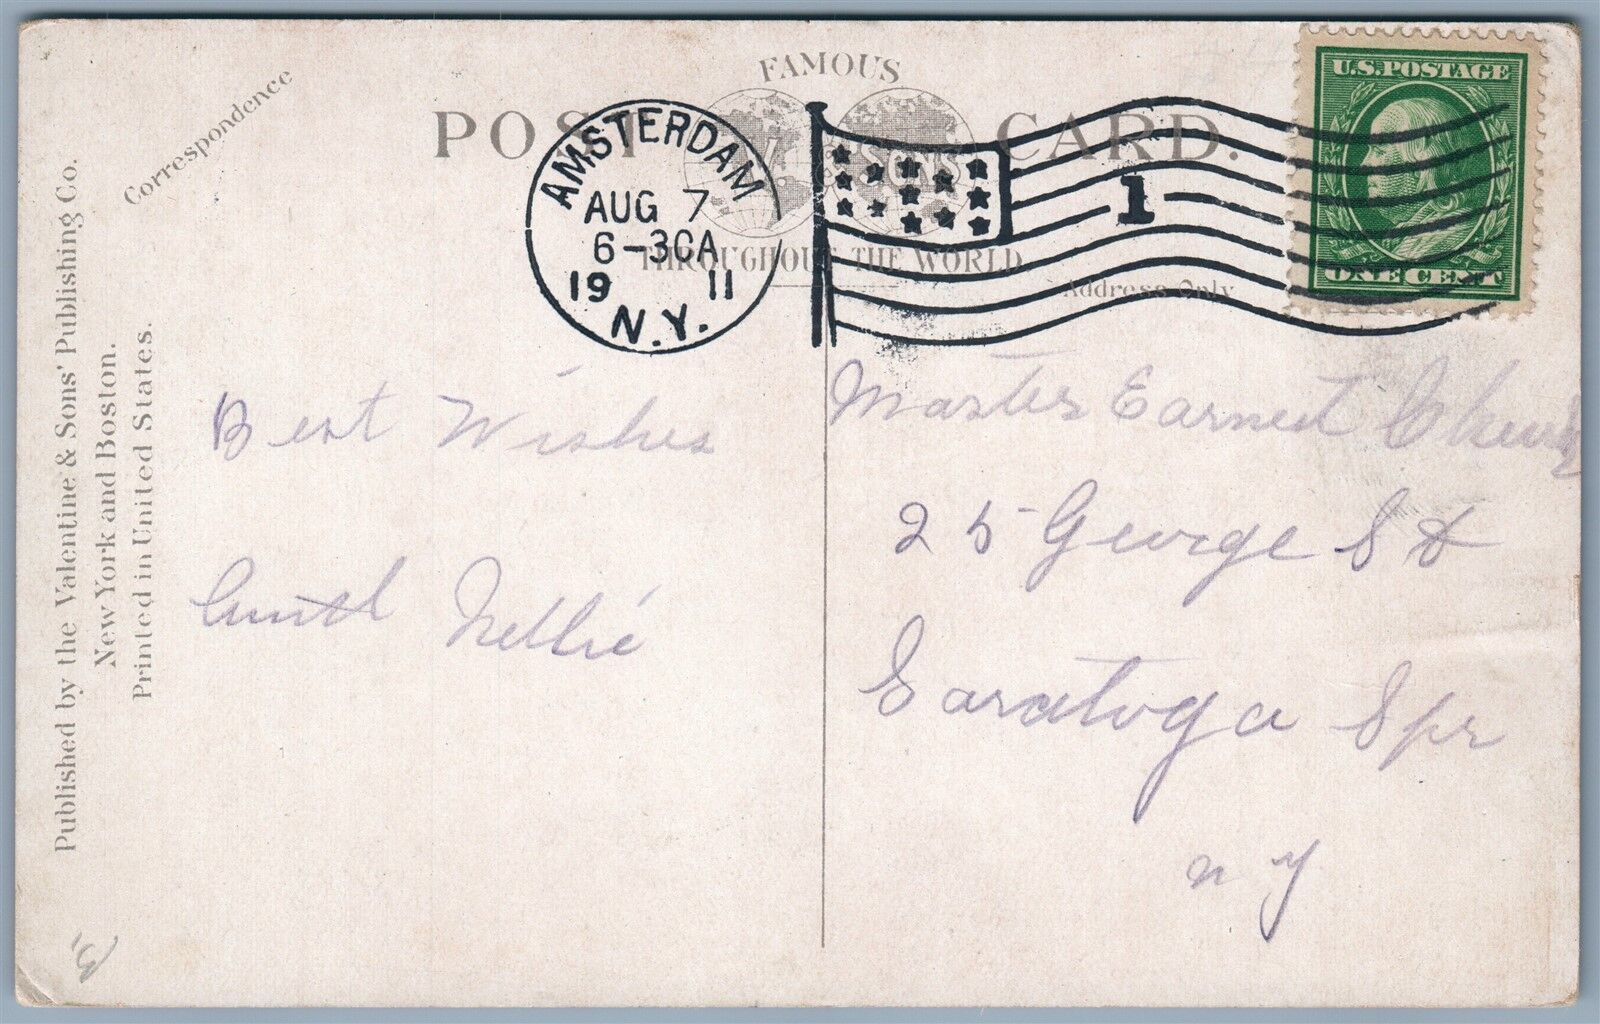 FAMOUS
POST CARD.
& SONS
THROUGHOUT THE WORLD.
Correspondence
Address Only
Published by the Valentine & Sons' Publishing Co.
New York and Boston.
Printed in United States.
AMSTERDAM
AUG 7
6-30A
19 11
N.Y.
1
U.S. POSTAGE
ONE CENT
Best Wishes
Aunt Nellie
Master Earnest
25 George St
Saratoga Spr
n y